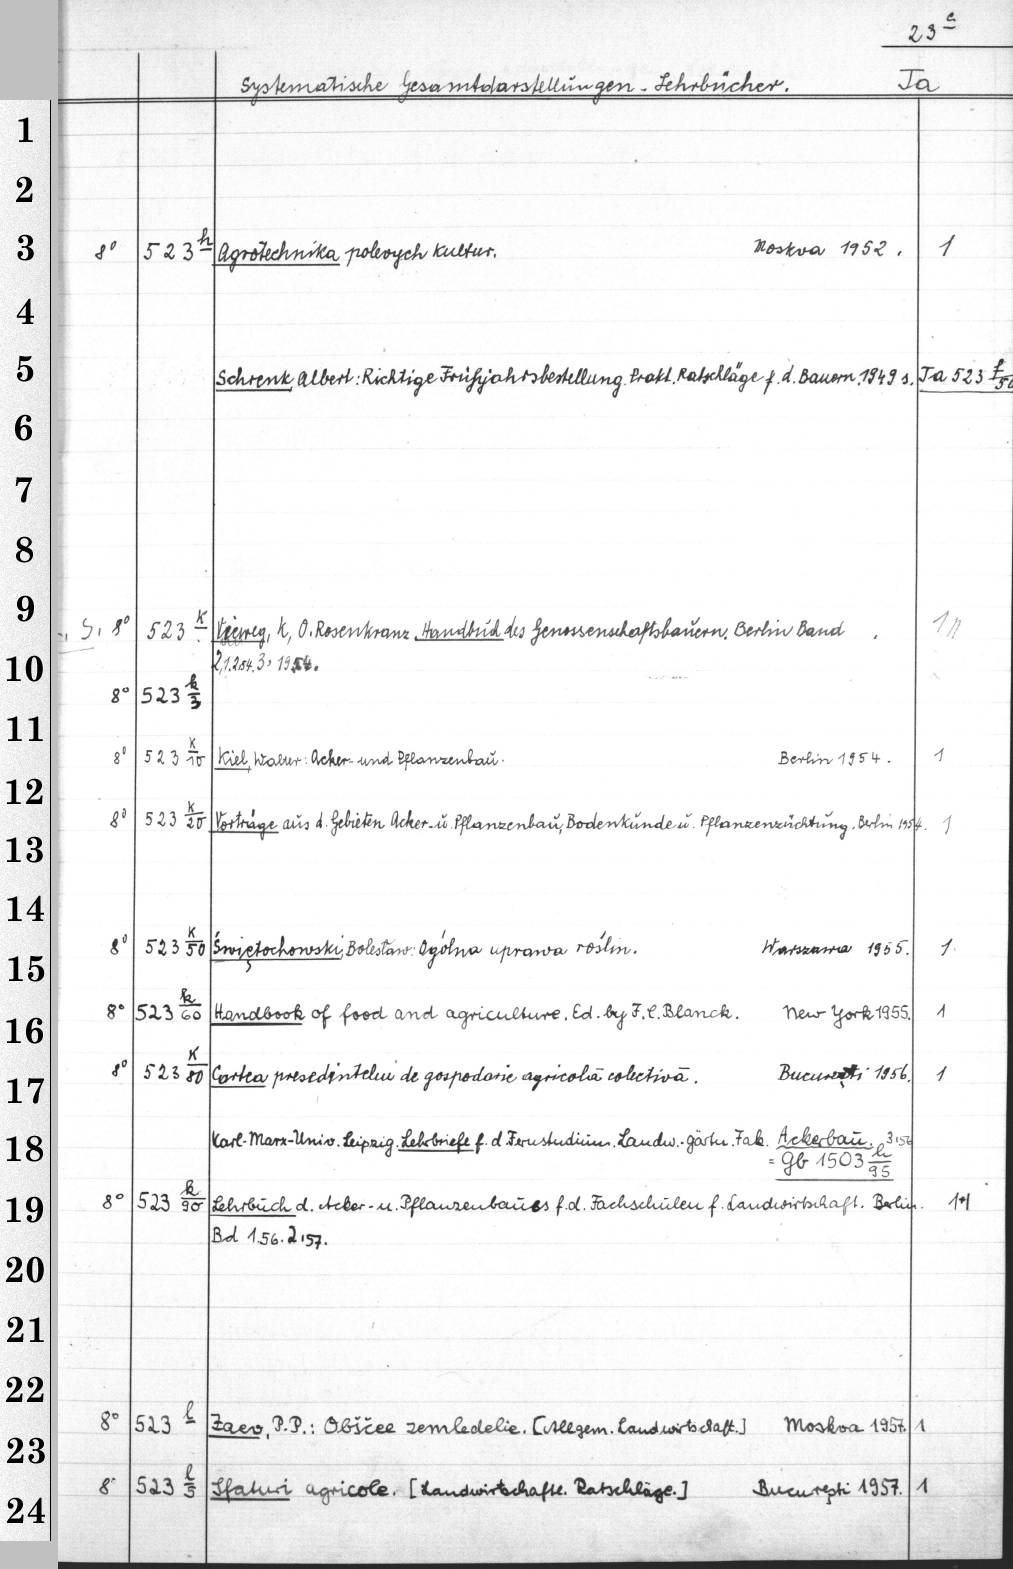 23 c
Systematische Gesamtdarstellungen - Lehrbücher. Ja
1
2
3 8° 523 h Agrotechnika polevych kultur. Moskva 1952. 1
4
5 Schrenk, Albert: Richtige Frühjahrsbestellung. Prakt. Ratschläge f. d. Bauern. 1949 s. Ja 523 f/50
6
7
8
9 S. 8° 523 k Vieweg, K, O. Rosenkranz. Handbuch des Genossenschaftsbauern. Berlin Band
10 2,1.2.54. 3, 1954.
8° 523 k/3
11 8° 523 k/10 Kiel, Walter: Acker- und Pflanzenbau. Berlin 1954. 1
12 8° 523 k/20 Vorträge aus d. Gebieten Acker- u. Pflanzenbau, Bodenkunde u. Pflanzenzüchtung. Berlin 1954. 1
13
14
15 8° 523 k/50 Świętochowski, Bolesław: Ogólna uprawa roślin. Warszawa 1955. 1
16 8° 523 k/60 Handbook of food and agriculture. Ed. by F.C. Blanck. New York 1955. 1
17 8° 523 k/80 Cartea presedintelui de gospodarie agricolă colectivă. București 1956. 1
18 Karl-Marx-Univ. Leipzig. Lehrbriefe f. d. Fernstudium. Landw.-gärtn. Fak. Ackerbau. 3.56
= Gb 1503 h/95
19 8° 523 k/90 Lehrbuch d. Acker- u. Pflanzenbaues f. d. Fachschulen f. Landwirtschaft. Berlin. 1+1
Bd 1.56. 2.57.
20
21
22
23 8° 523 l Zaev, P.P.: Obščee zemledelie. [Allgem. Landwirtschaft.] Moskva 1957. 1
24 8° 523 l/5 Sfaturi agricole. [Landwirtschaftl. Ratschläge.] București 1957. 1